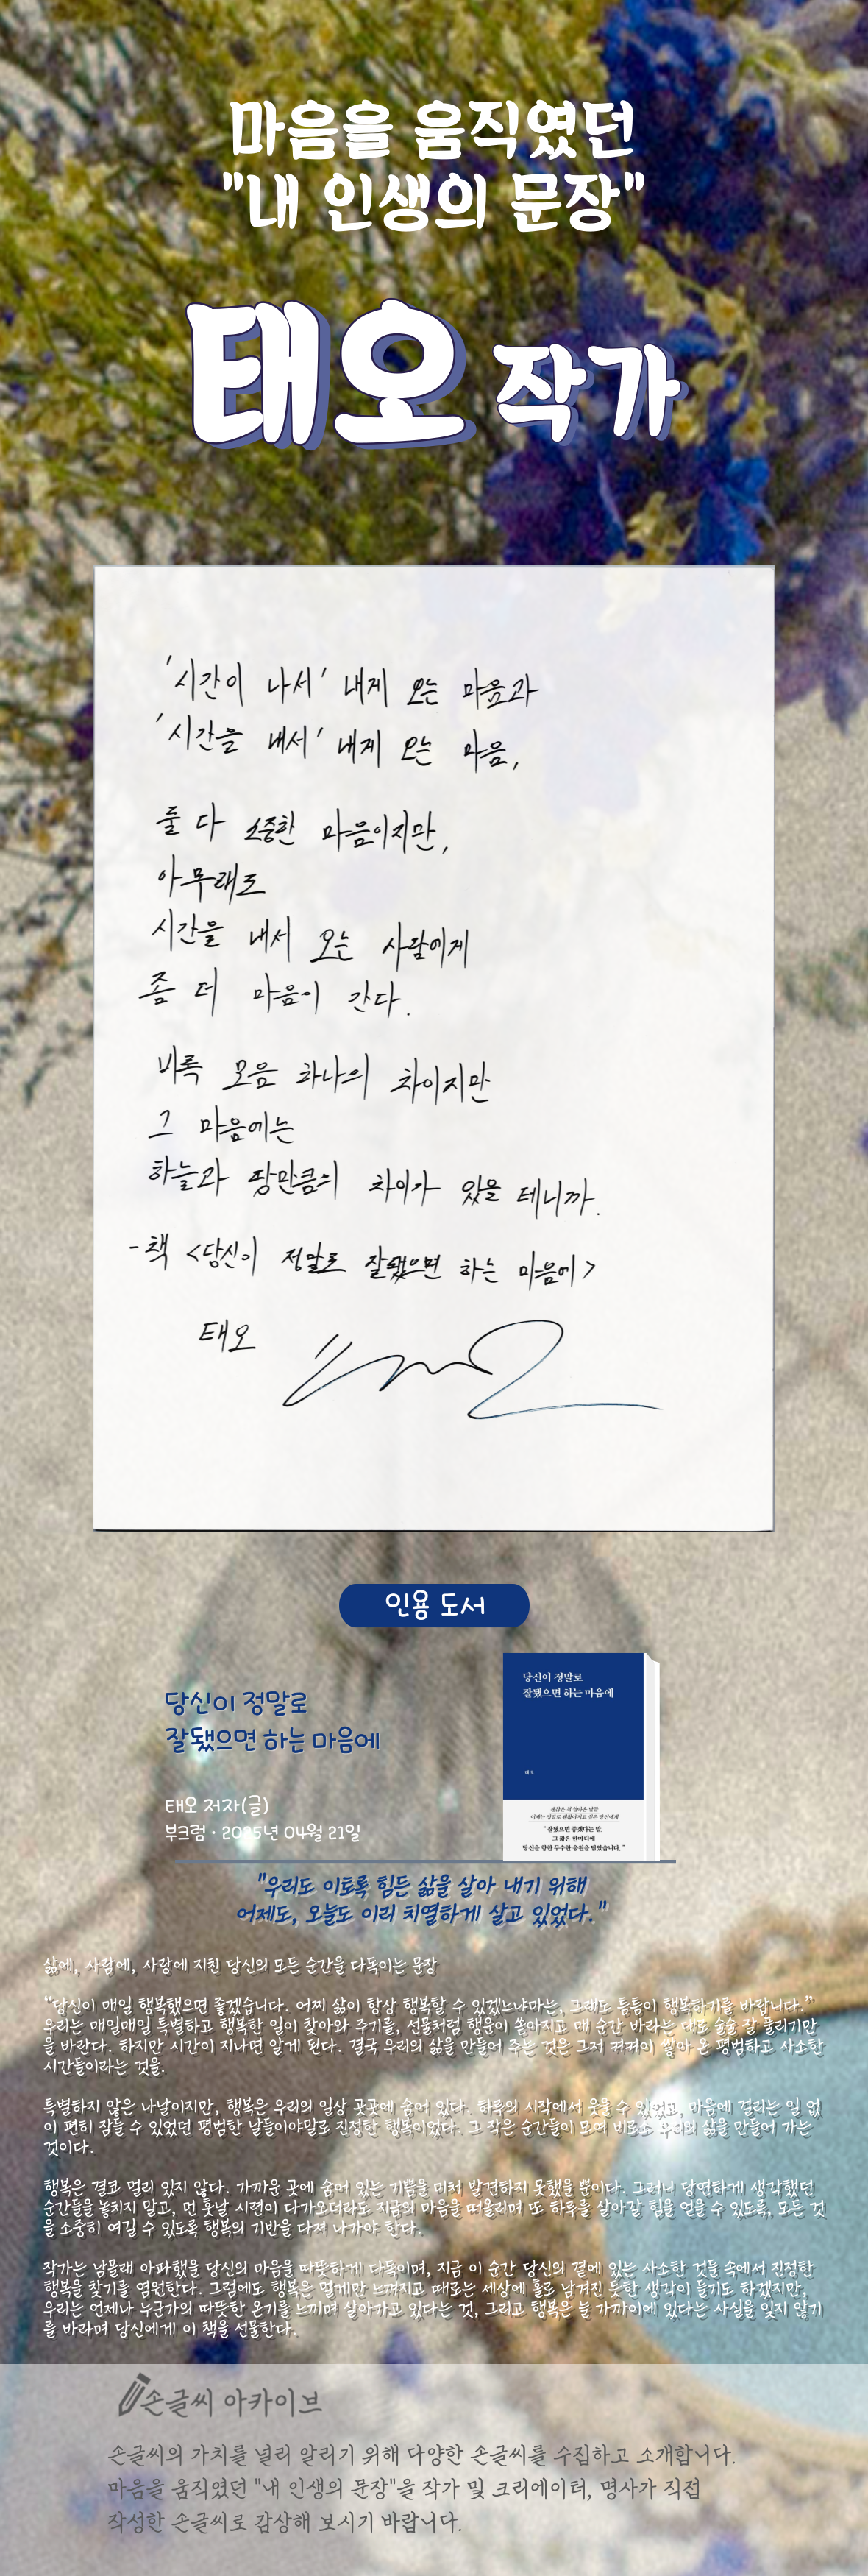 마음을 움직였던
"내 인생의 문장"
태오 작가
'시간이 나서' 내게 오는 마음과
'시간을 내서' 내게 오는 마음,
둘 다 소중한 마음이지만,
아무래도
시간을 내서 오는 사람에게
좀 더 마음이 간다.
비록 모음 하나의 차이지만
그 마음에는
하늘과 땅만큼의 차이가 있을 테니까.
- 책 <당신이 정말로 잘됐으면 하는 마음에>
태오
인용 도서
당신이 정말로
잘됐으면 하는 마음에
태오 저자(글)
부크럼 · 2025년 04월 21일
당신이 정말로
잘됐으면 하는 마음에
태오
괜찮은 척 살아온 날들
이제는 정말로 괜찮아지고 싶은 당신에게
"잘됐으면 좋겠다는 말,
그 짧은 한마디에
당신을 향한 무수한 응원을 담았습니다."
"우리도 이토록 힘든 삶을 살아 내기 위해
어제도, 오늘도 이리 치열하게 살고 있었다."
삶에, 사랑에, 사람에 지친 당신의 모든 순간을 다독이는 문장
“당신이 매일 행복했으면 좋겠습니다. 어찌 삶이 항상 행복할 수 있겠느냐마는, 그래도 틈틈이 행복하기를 바랍니다.”
우리는 매일매일 특별하고 행복한 일이 찾아와 주기를, 선물처럼 행운이 쏟아지고 매 순간 바라는 대로 술술 잘 풀리기만
을 바란다. 하지만 시간이 지나면 알게 된다. 결국 우리의 삶을 만들어 주는 것은 그저 켜켜이 쌓아 온 평범하고 사소한
시간들이라는 것을.
특별하지 않은 나날이지만, 행복은 우리의 일상 곳곳에 숨어 있다. 하루의 시작에서 웃을 수 있었고, 마음에 걸리는 일 없
이 편히 잠들 수 있었던 평범한 날들이야말로 진정한 행복이었다. 그 작은 순간들이 모여 비로소 우리의 삶을 만들어 가는
것이다.
행복은 결코 멀리 있지 않다. 가까운 곳에 숨어 있는 기쁨을 미처 발견하지 못했을 뿐이다. 그러니 당연하게 생각했던
순간들을 놓치지 말고, 먼 훗날 시련이 다가오더라도 지금의 마음을 떠올리며 또 하루를 살아갈 힘을 얻을 수 있도록, 모든 것
을 소중히 여길 수 있도록 행복의 기반을 다져 나가야 한다.
작가는 남몰래 아파했을 당신의 마음을 따뜻하게 다독이며, 지금 이 순간 당신의 곁에 있는 사소한 것들 속에서 진정한
행복을 찾기를 염원한다. 그럼에도 행복은 멀게만 느껴지고 때로는 세상에 홀로 남겨진 듯한 생각이 들기도 하겠지만,
우리는 언제나 누군가의 따뜻한 온기를 느끼며 살아가고 있다는 것, 그리고 행복은 늘 가까이에 있다는 사실을 잊지 않기
를 바라며 당신에게 이 책을 선물한다.
손글씨 아카이브
손글씨의 가치를 널리 알리기 위해 다양한 손글씨를 수집하고 소개합니다.
마음을 움직였던 "내 인생의 문장"을 작가 및 크리에이터, 명사가 직접
작성한 손글씨로 감상해 보시기 바랍니다.